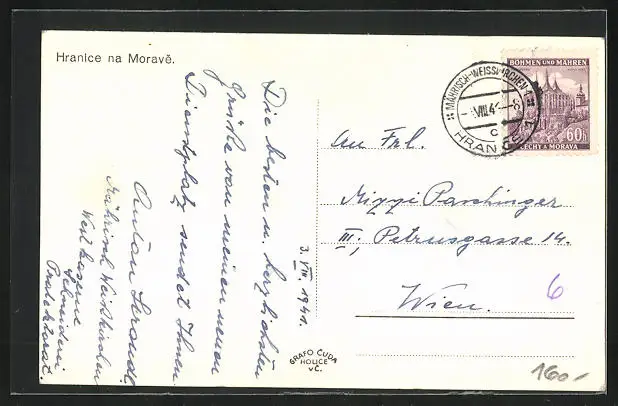 Hranice na Moravě.
MÄHRISCH-WEISSKIRCHEN 1
VIII.41
c
HRANICE 1
BÖHMEN UND MÄHREN
60h
ČECHY A MORAVA
Die besten u. herzlichsten
Grüße von meinem neuen
Dienstplatz sendet Ihnen
Anton
Mährisch Weißkirchen
Schneiderei
Protektorat.
3. VIII. 1941.
An Frl.
Mizzi Parchinger
III., Petrusgasse 14.
Wien.
6
GRAFO ČUDA
HOLICE
v Č.
160.-